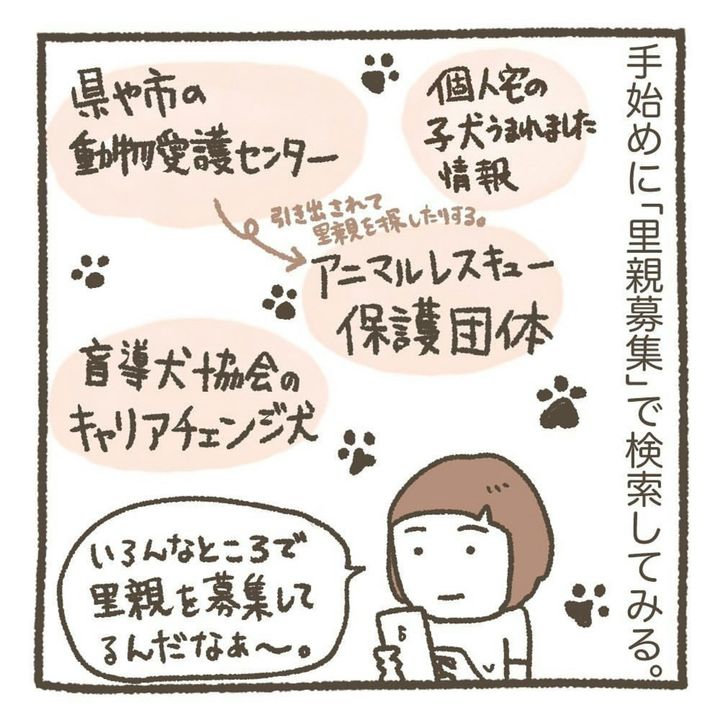 手始めに「里親募集」で検索してみる。
個人宅の
子犬うまれました
情報
県や市の
動物愛護センター
引き出されて
里親を探したりする。
アニマルレスキュー
保護団体
盲導犬協会の
キャリアチェンジ犬
いろんなところで
里親を募集して
るんだなぁ〜。